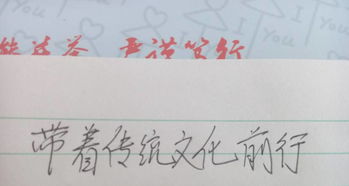 I
You
I
You
严谨笃行
带着传统文化前行